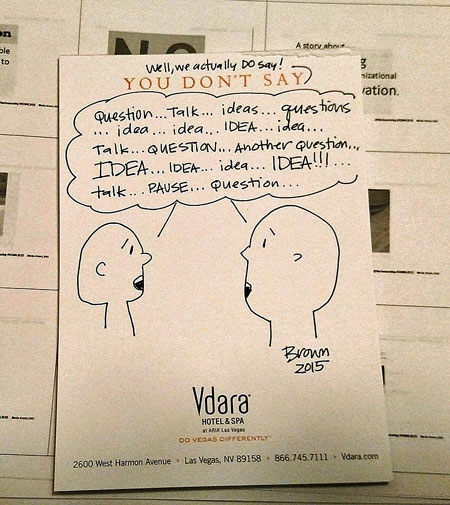 Well, we actually DO say!
YOU DON'T SAY
Question... Talk... ideas... questions
... idea... idea... IDEA... idea...
Talk... QUESTION... Another Question...
IDEA... IDEA... idea... IDEA!!!...
talk... PAUSE... Question...
Brown
2015
Vdara
HOTEL & SPA
at ARIA Las Vegas
DO VEGAS DIFFERENTLY™
2600 West Harmon Avenue • Las Vegas, NV 89158 • 866.745.7111 • Vdara.com
A story about
nizational
vation.